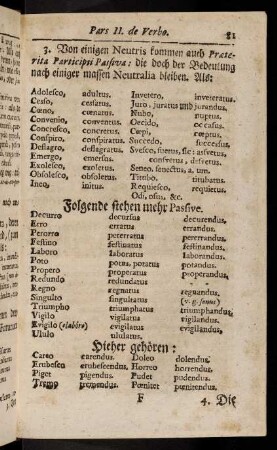 Pars II. de Verbo. 81
3. Von einigen Neutris kommen auch Præte-
rita Participii Passiva: die doch der Bedeutung
nach einiger massen Neutralia bleiben. Als:
Adolesco, adultus. Invetero, inveteratus.
Cesso, cessatus. Juro, juratus und jurandus.
Cœno, cœnatus. Nubo, nuptus.
Convenio, conventus. Occido, occasus.
Concresco, concretus. Cœpi, cœptus.
Conspiro, conspiratus. Succedo, successus.
Deflagro, deflagratus. Svesco, svetus, sic: assvetus,
Emergo, emersus. consvetus, desvetus.
Exolesco, exoletus. Seneo, senectus, a, um.
Obsolesco, obsoletus. Titubo, titubatus.
Ineo, initus. Requiesco, requietus.
Odi, osus, &c.
Folgende stehen mehr Passive.
Decurro decursus decurendus.
Erro erratus errandus.
Perorro pererratus pererrandus.
Festino festinatus festinandus.
Laboro laboratus laborandus.
Poto potus, potatus potandus.
Propero properatus properandus.
Redundo redundatus
Regno regnatus regnandus.
Singulto singultatus (v. g. sonus)
Triumpho triumphatus triumphandus,
Vigilo vigilatus vigilandus.
Evigilo (elabòro) evigilatus evigilandus,
Ululo ululatus.
Hieher gehören:
Careo carendus. Doleo dolendus.
Erubesco erubescendus. Horreo horrendus.
Piget pigendus. Pudet pudendus.
Tremo tremendus. Pœnitet pœnitendus.
F 4. Die